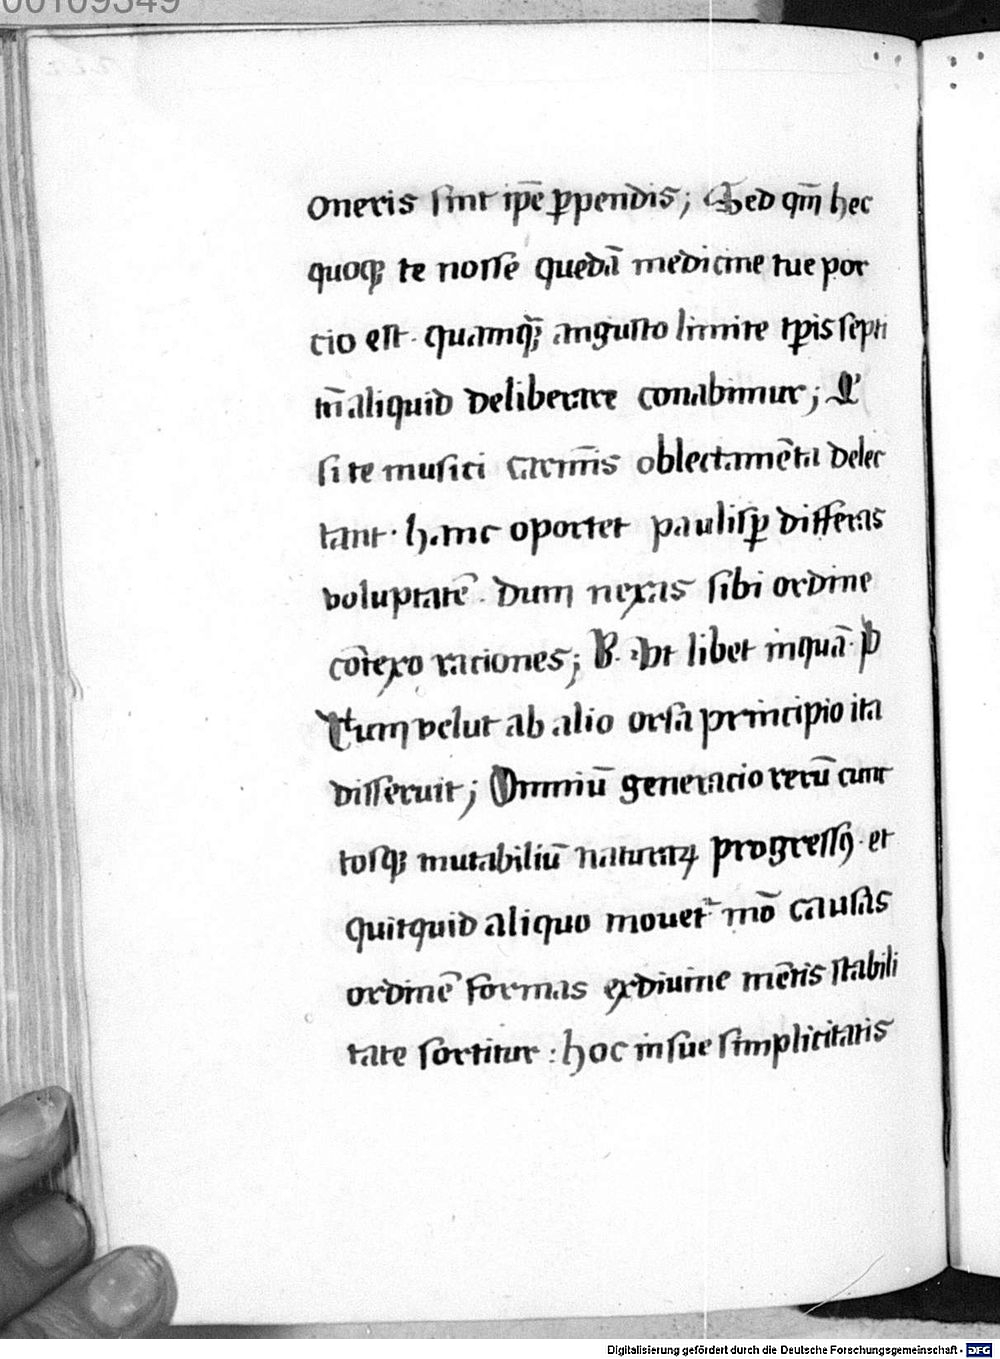 00109349
oneris sint ip̄e ꝑpendis; Sed qm̄ hec
quoqꝫ te nosse quedā medicine tue por
cio est. quamqꝫ angusto limite tꝑis septi
m̄ aliquid deliberare conabimur;
si te musici carmīs oblectamēta delec
tant. hanc oportet paulisꝑ differas
voluptatē. dum nexas sibi ordine
cōtexo raciones; B. Vt libet inquā. 
Tum velut ab alio orsa principio ita
disseruit; Omniū generacio rerū cunc
tosqꝫ mutabiliū naturaꝝ progressꝯ. et
quitquid aliquo mouet᷑ mō causas
ordinē formas ex diuine mētis stabili
tate sortitur: hoc in sue simplicitatis
Digitalisierung gefördert durch die Deutsche Forschungsgemeinschaft - DFG